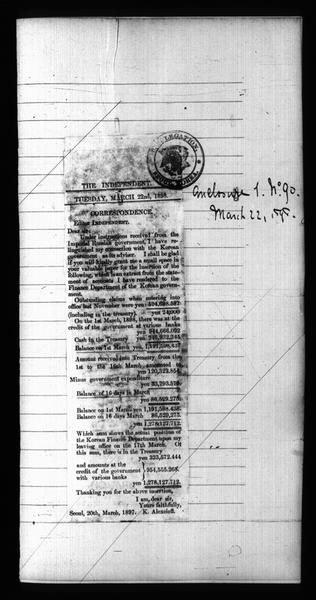 LEGATION
Enclosure 1. No 90.
March 22, 98.
THE INDEPENDENT.
TUESDAY, MARCH 22nd, 1898.
CORRESPONDENCE.
Editor INDEPENDENT.
Dear sir:
Under instructions received from the
Imperial Russian government, I have re-
linquished my connection with the Korean
government as its adviser. I shall be glad
if you will kindly grant me a small space in
your valuable paper for the insertion of the
following, which is an extract from the state-
ment of accounts I have rendered to the
Finance Department of the Korean govern-
ment.
Outstanding claims when entering into
office but November were yen
(including in the treasury). yen 24000
On the 1st March, 1898, there was at the
credit of the government at various banks
yen 944,666.092
Cash in the Treasury yen
Balance on 1st March yen
Amount received into Treasury from the
1st to the 16th March amounted to
yen 120,322.854
Minus government expenditure
yen 33,793.579
Balance of 16 days in March
yen 86,529.275
Balance on 1st March yen 1,191,598.438
Balance on 16 days March 86,529.275
yen 1,278,127.712
Which sum shows the actual position of
the Korean Finance Department upon my
leaving office on the 17th March. Of
this sum, there is in the Treasury
yen 323,572.444
and amounts at the
credit of the government } 954,555.268
with various banks
yen 1,278,127.712
Thanking you for the above insertion,
I am, dear sir,
Yours faithfully,
Seoul, 20th, March, 1897. K. Alexeieff.